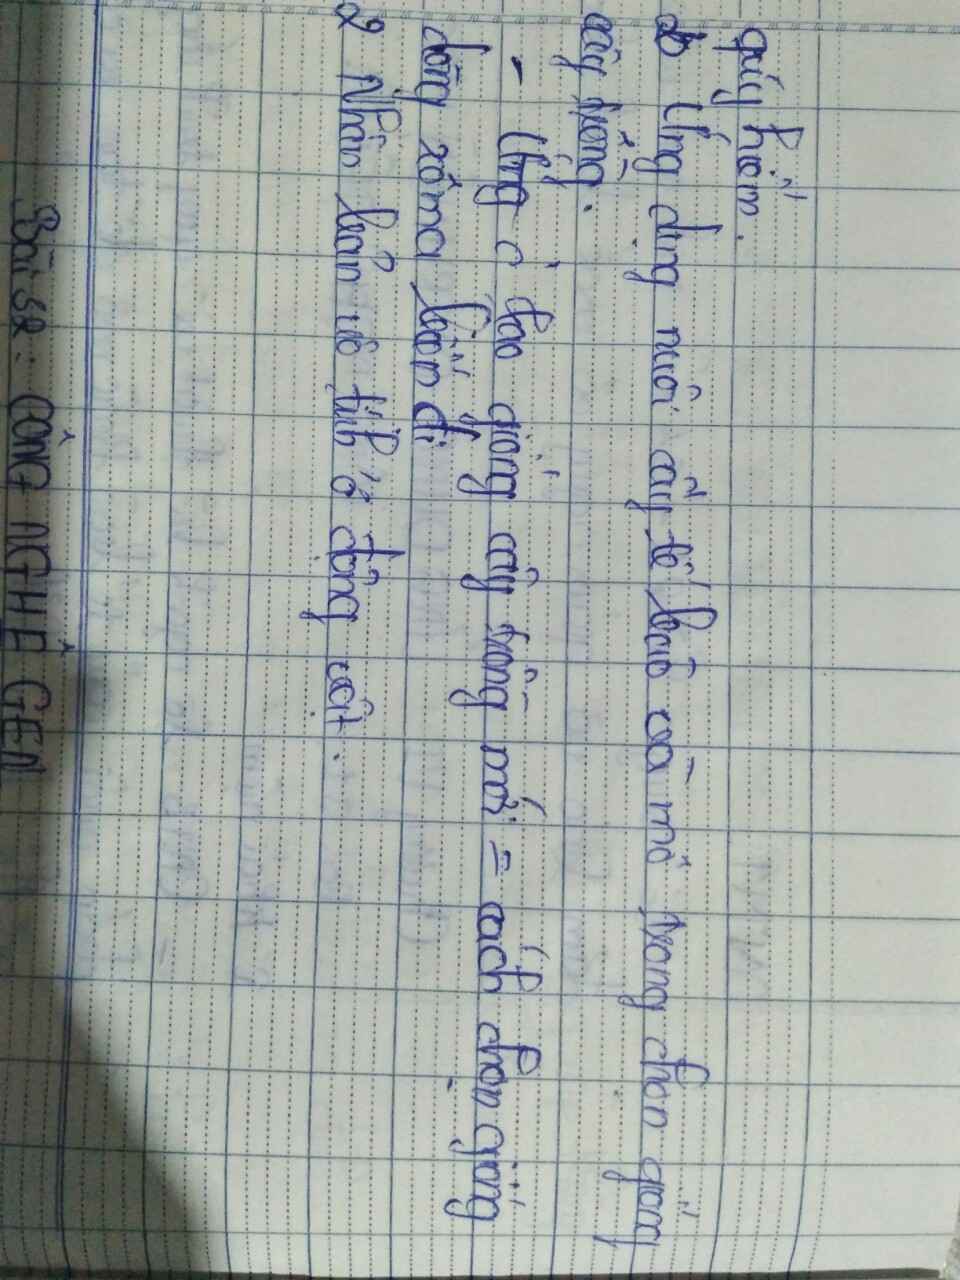 quý hiếm.
b Ứng dụng nuôi cấy tế bào và mô trong chọn giống
cây trồng.
- Ứng d tạo giống cây trồng mới = cách chọn giống
dòng xôma biến dị
2 Nhân bản vô tính ở động vật.
Bài 32: CÔNG NGHỆ GEN